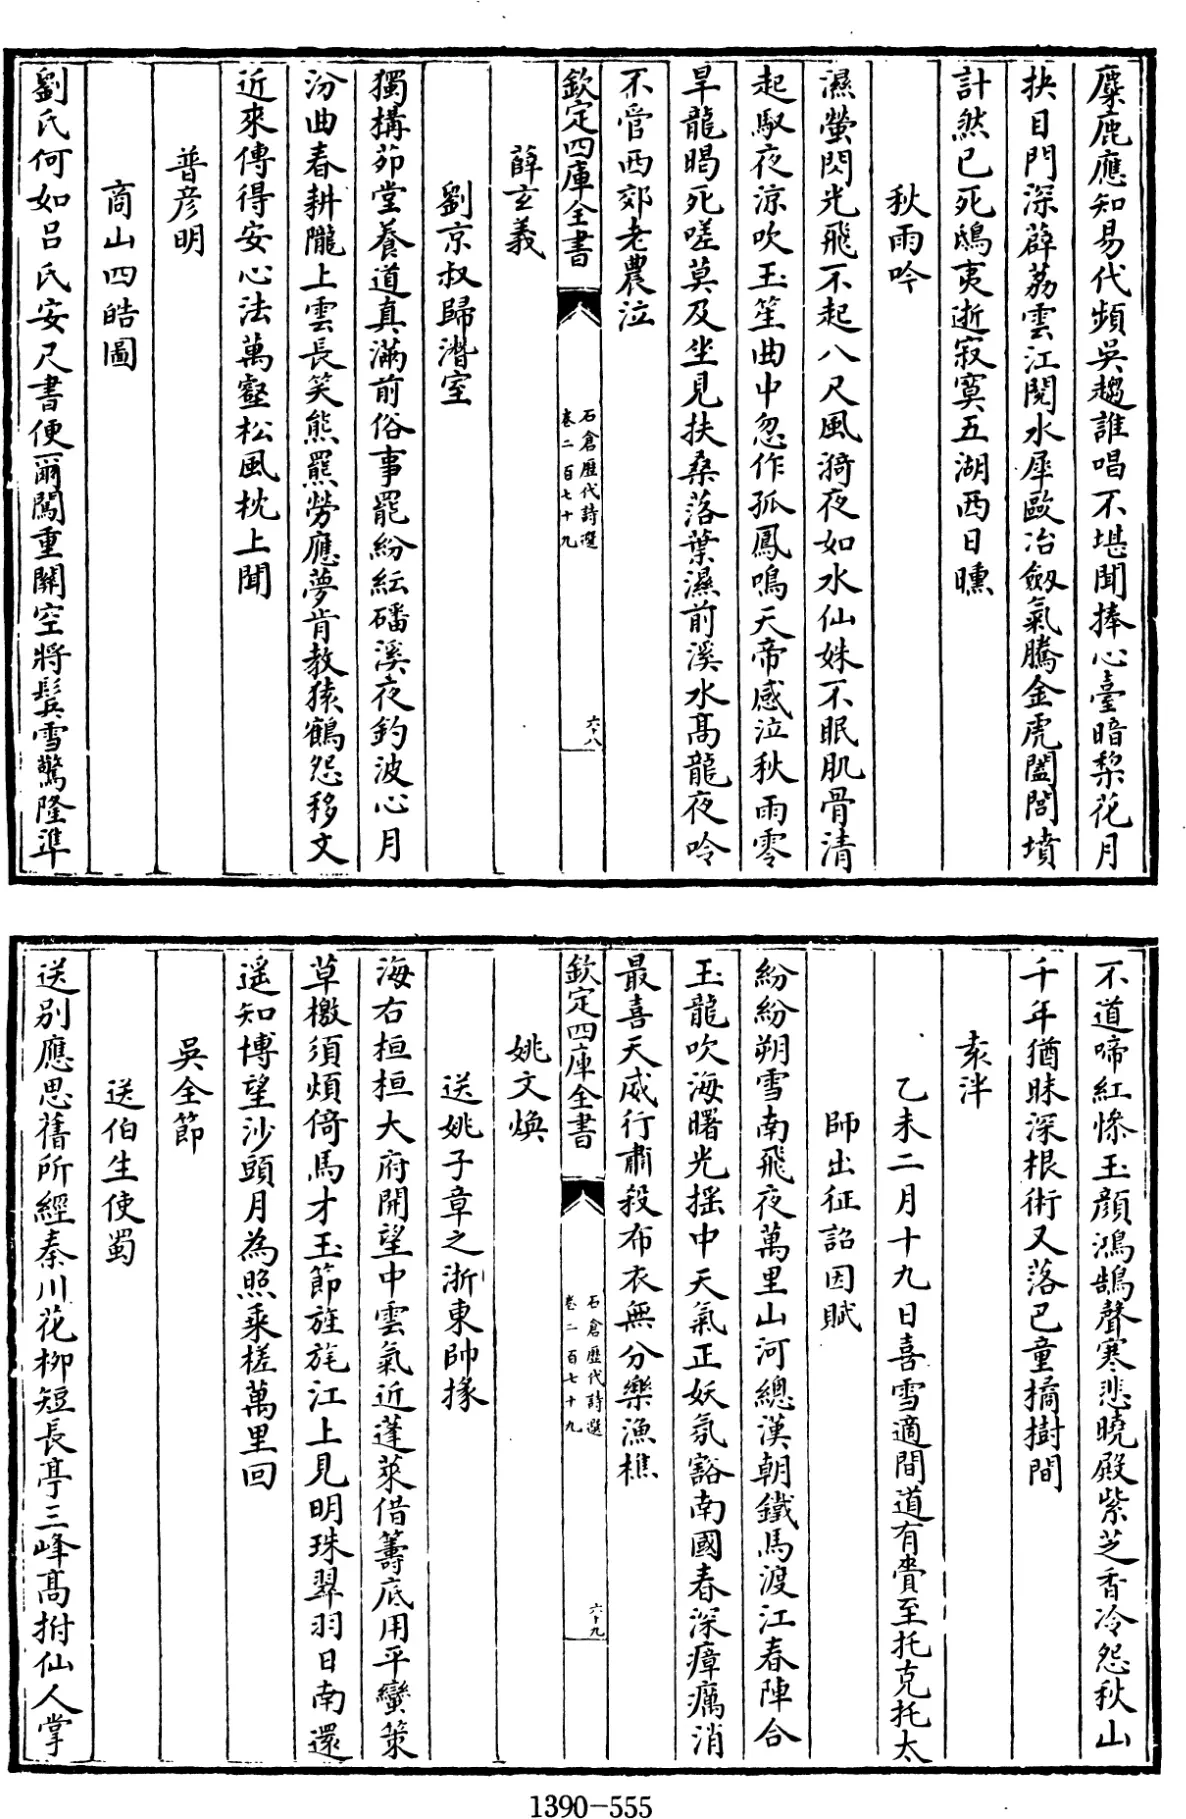 麋鹿應知易代頻吳趨誰唱不堪聞捧心臺暗梨花月
抉目門深薜荔雲江閱水犀歐冶劔氣騰金虎闔閭墳
計然已死鴟夷逝寂寞五湖西日曛
秋雨吟
濕螢閃光飛不起八尺風漪夜如水仙姝不眠肌骨清
起馭夜涼吹玉笙曲中忽作孤鳳鳴天帝感泣秋雨零
旱龍暍死嗟莫及坐見扶桑落葉濕前溪水髙龍夜吟
不管西郊老農泣
欽定四庫全書
石倉歷代詩選
卷二百七十九
六十八
薛玄義
劉京叔歸潛室
獨搆茆堂養道真滿前俗事罷紛紜磻溪夜釣波心月
汾曲春耕隴上雲長笑熊羆勞應夢肯教猿鶴怨移文
近來傳得安心法萬壑松風枕上聞
普彦明
商山四皓圖
劉氏何如呂氏安尺書便爾闖重闗空將鬂雪驚隆準
不道啼紅慘玉顔鴻鵠聲寒悲曉殿紫芝香冷怨秋山
千年猶昧深根術又落巴童橘樹間
袁泮
乙未二月十九日喜雪適間道有賫至托克托太
師出征詔因賦
紛紛朔雪南飛夜萬里山河總漢朝鐵馬渡江春陣合
玉龍吹海曙光摇中天氣正妖氛豁南國春深瘴癘消
最喜天威行肅殺布衣無分樂漁樵
欽定四庫全書
石倉歷代詩選
卷二百七十九
六十九
姚文煥
送姚子章之浙東帥掾
海右桓桓大府開望中雲氣近蓬萊借籌底用平蠻策
草檄須煩倚馬才玉節旌旄江上見明珠翠羽日南還
遥知博望沙頭月為照乗槎萬里回
吳全節
送伯生使蜀
送别應思舊所經秦川花柳短長亭三峰髙拊仙人掌
1390-555